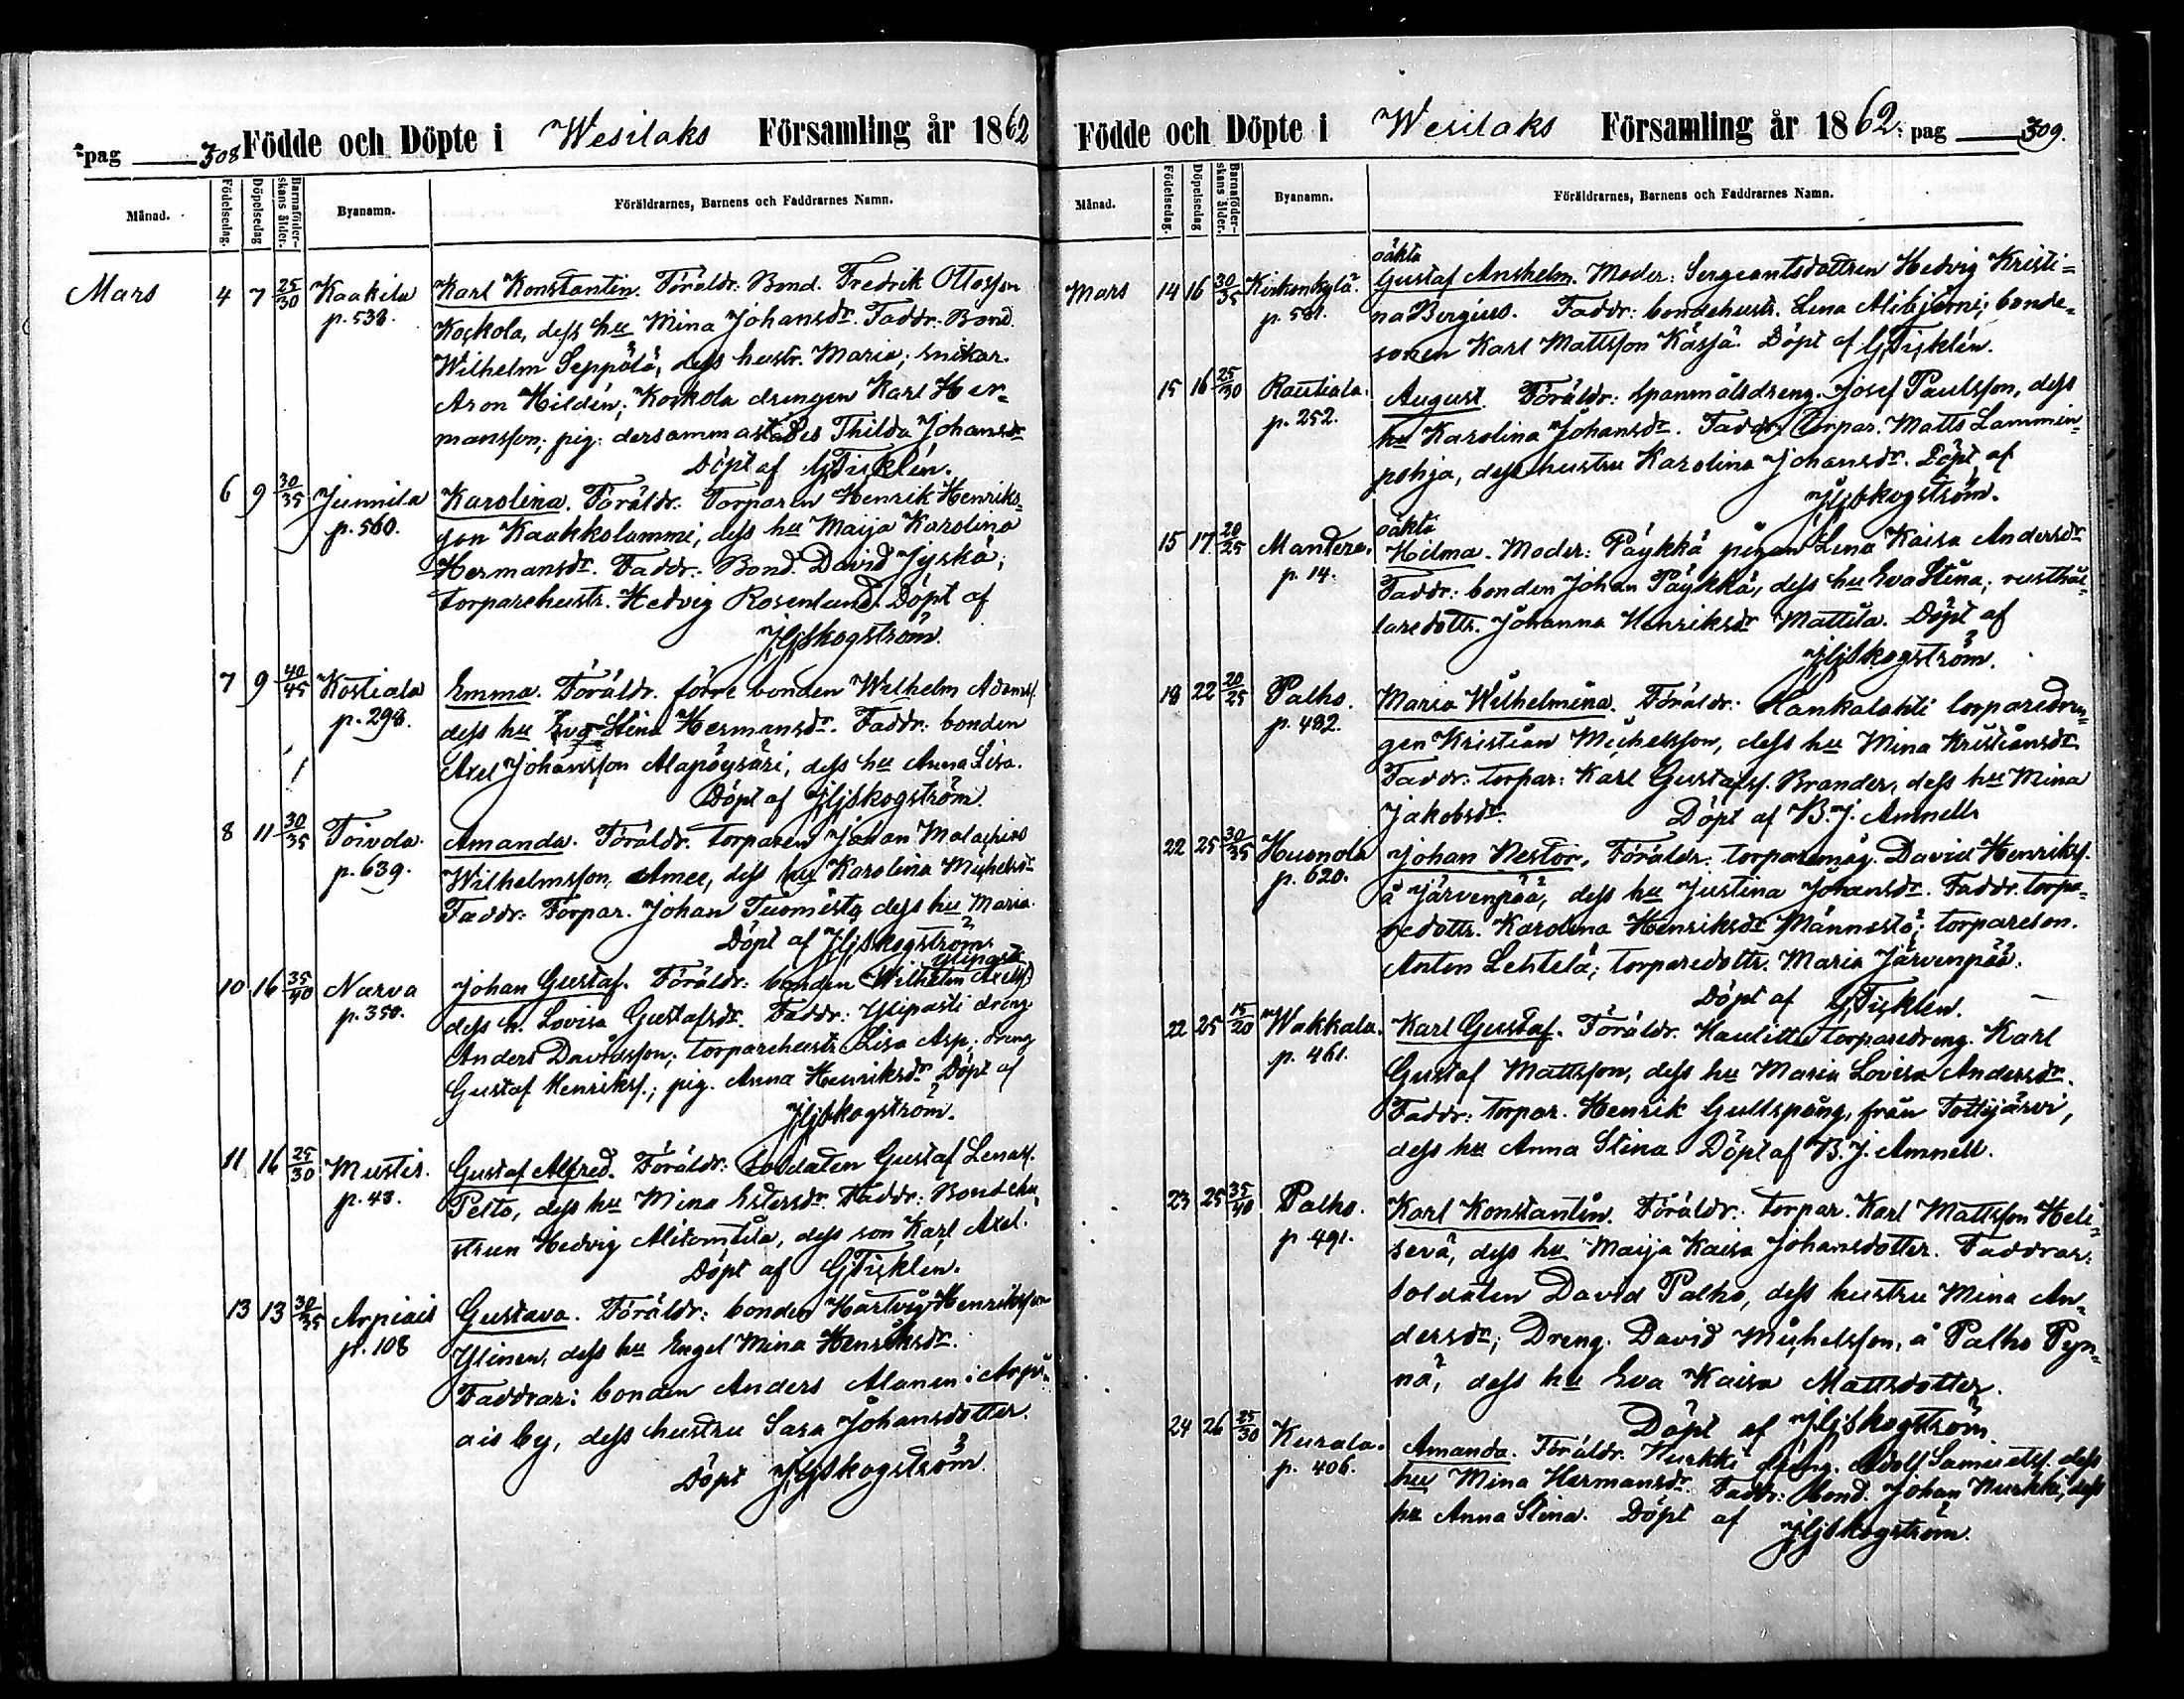 pag 308 Födde och Döpte i Wesilaks Församling år 1862
Månad. Födelsedag. Döpelsedag Barnaföderskans ålder. Byanamn. Föräldrarnes, Barnens och Faddrarnes Namn.
Mars 4 7 25/30 Kaakila p. 538. Karl Konstantin. Föräldr: Bond. Fredrik Ottosson
Koskola, dess hu Mina Johansdr. Faddr. Bond.
Wilhelm Seppälä, dess hustr. Maria; snikar.
Aron Hildén; Koskola drengen Karl Her-
mansson; pig. dersammastädes Thilda Johansdr
Döpt af GFicklén.
6 9 30/35 Junnila p. 560. Karolina. Föräldr: Torparen Henrik Henriks-
son Kaakkolammi, dess hu Maija Karolina
Hermansdr. Faddr: Bond. David Jyskä;
torparehustr. Hedvig Rosenlund. Döpt af
JGSkogström.
7 9 40/45 Kostiala p. 298. Emma. Föräldr. förre bonden Wilhelm Adamss.
dess hu Eva Stina Hermansdr. Faddr: bonden
Axel Johansson Alapöysäri, dess hu Anna Lisa.
Döpt af JGSkogström.
8 11 30/35 Toivola p. 639. Amanda. Föräldr. torparen Johan Malachias
Wilhelmsson Amee, dess hu Karolina Michelsdr
Faddr: Torpar. Johan Tuomisto, dess hu Maria.
Döpt af JGSkogström.
10 16 35/40 Narva p. 350. Johan Gustaf. Föräldr: bonden Wilhelm Axelss. Ylipasti
dess h. Lovisa Gustafsdr. Faddr: Ylipasti dräng
Anders Davidsson; torparehustr. Lisa Asp; dreng
Gustaf Henrikss.; pig. Anna Henriksdr. Döpt af
JGSkogström.
11 16 25/30 Mustis. p. 48. Gustaf Alfred. Föräldr: soldaten Gustaf Lenass.
Pelto, dess hu Mina Estersdr. Faddr: Bondehu-
strun Hedvig Alitomtila, dess son Karl Axel.
Döpt af GFicklén.
13 13 30/35 Arpiais p. 108 Gustava. Föräldr: bonden Hartvig Henriksson
Ylinen, dess hu Engel Mina Henriksdr.
Faddrar: bonden Anders Alanen i Arpi-
ais by, dess hustru Sara Johansdotter.
Döpt JGSkogström.
Födde och Döpte i Wesilaks Församling år 1862. pag 309.
Månad. Födelsedag. Döpelsedag Barnaföderskans ålder. Byanamn. Föräldrarnes, Barnens och Faddrarnes Namn.
oäkta
Mars 14 16 30/35 Kirkonkylä. p. 581. Gustaf Anshelm. Moder: Sergeantsdottren Hedvig Kristi-
na Bergius. Faddr: bondehustr. Lena Alibjerni; bonde-
sonen Karl Mattsson Kässä. Döpt af GFicklén.
15 16 25/30 Rautiala. p. 252. August. Föräldr: Spanmålsdreng. Josef Paulsson, dess
hu Karolina Johansdr. Faddr. Torpar. Matts Lammin-
pohja, dess hustru Karolina Johansdr. Döpt af
JGSkogström.
oäkta
15 17 20/25 Mantere. p. 14. Hilma. Moder: Päykkä pigan Lena Kaisa Andersdr
Faddr: bonden Johan Päykkä, dess hu Eva Stina; rusthål-
laredottr. Johanna Henriksdr Mattila. Döpt af
JGSkogström.
19 22 20/25 Palho. p. 482. Maria Wilhelmina. Föräldr: Hankalahti torparedren-
gen Kristian Michelsson, dess hu Mina Kristiansdr.
Faddr: torpar: Karl Gustafss. Brander, dess hu Mina
Jakobsdr. Döpt af B. J. Amnell
22 25 30/35 Huonola p. 620. Johan Nestor. Föräldr: torparemåg. David Henrikss.
å Järvenpää, dess hu Justina Johansdr. Faddr. torpa-
redottr. Karolina Henriksdr Männestö; torpareson.
Anton Lehtelä; torparedottr. Maria Järvenpää.
Döpt af GFicklén.
22 25 15/20 Wakkala. p. 461. Karl Gustaf. Föräldr. Haulitta torparedreng. Karl
Gustaf Mattsson, dess hu Maria Lovisa Andersdr.
Faddr: torpar. Henrik Gullspång, från Tottijärvi,
dess hu Anna Stina. Döpt af B. J. Amnell.
23 25 35/40 Palho. p. 491. Karl Konstantin. Föräldr: torpar. Karl Mattsson Heli-
sevä, dess hu Maija Kaisa Johansdotter. Faddrar:
soldaten David Palho, dess hustru Mina An-
dersdr; Dreng. David Michelsson, å Palho Pyn-
nä, dess hu Eva Kaisa Mattsdotter.
Döpt af JGSkogström.
24 26 25/30 Kurala. p. 406. Amanda. Föräldr. Hurkki dräng. Adolf Samuelss. dess
hu Mina Hermansdr. Faddr: bond. Johan Hurkki, dess
hu Anna Stina. Döpt af JGSkogström.